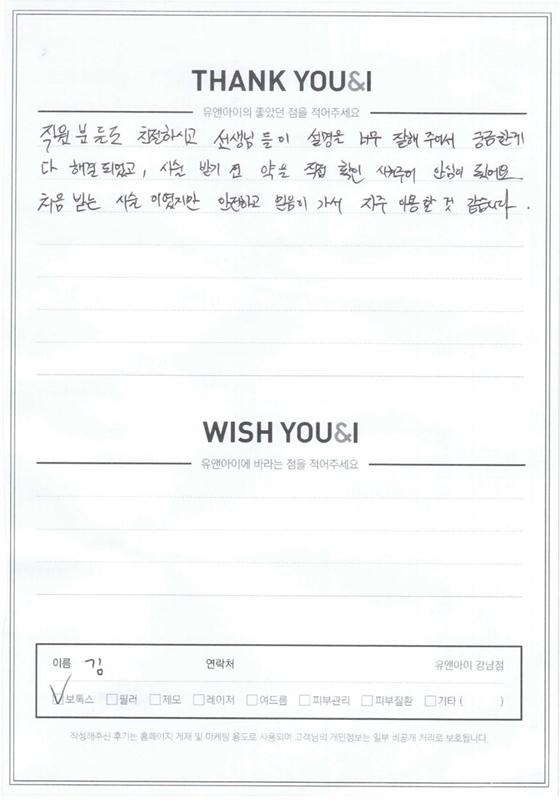 THANK YOU&I
유앤아이의 좋았던 점을 적어주세요
직원 분들도 친절하시고 선생님들이 설명을 너무 잘해 주셔서 궁금한게
다 해결되었고, 시술 받기 전 약을 직접 확인 시켜주어 안심이 되었어요
처음 받는 시술 이였지만 안전하고 믿음이 가서 자주 이용할 것 같습니다.
WISH YOU&I
유앤아이에 바라는 점을 적어주세요
이름 김 연락처 유앤아이 강남점
보톡스 필러 제모 레이저 여드름 피부관리 피부질환 기타 ( )
작성해주신 후기는 홈페이지 게재 및 마케팅 용도로 사용되며 고객님의 개인정보는 일부 비공개 처리로 보호됩니다.